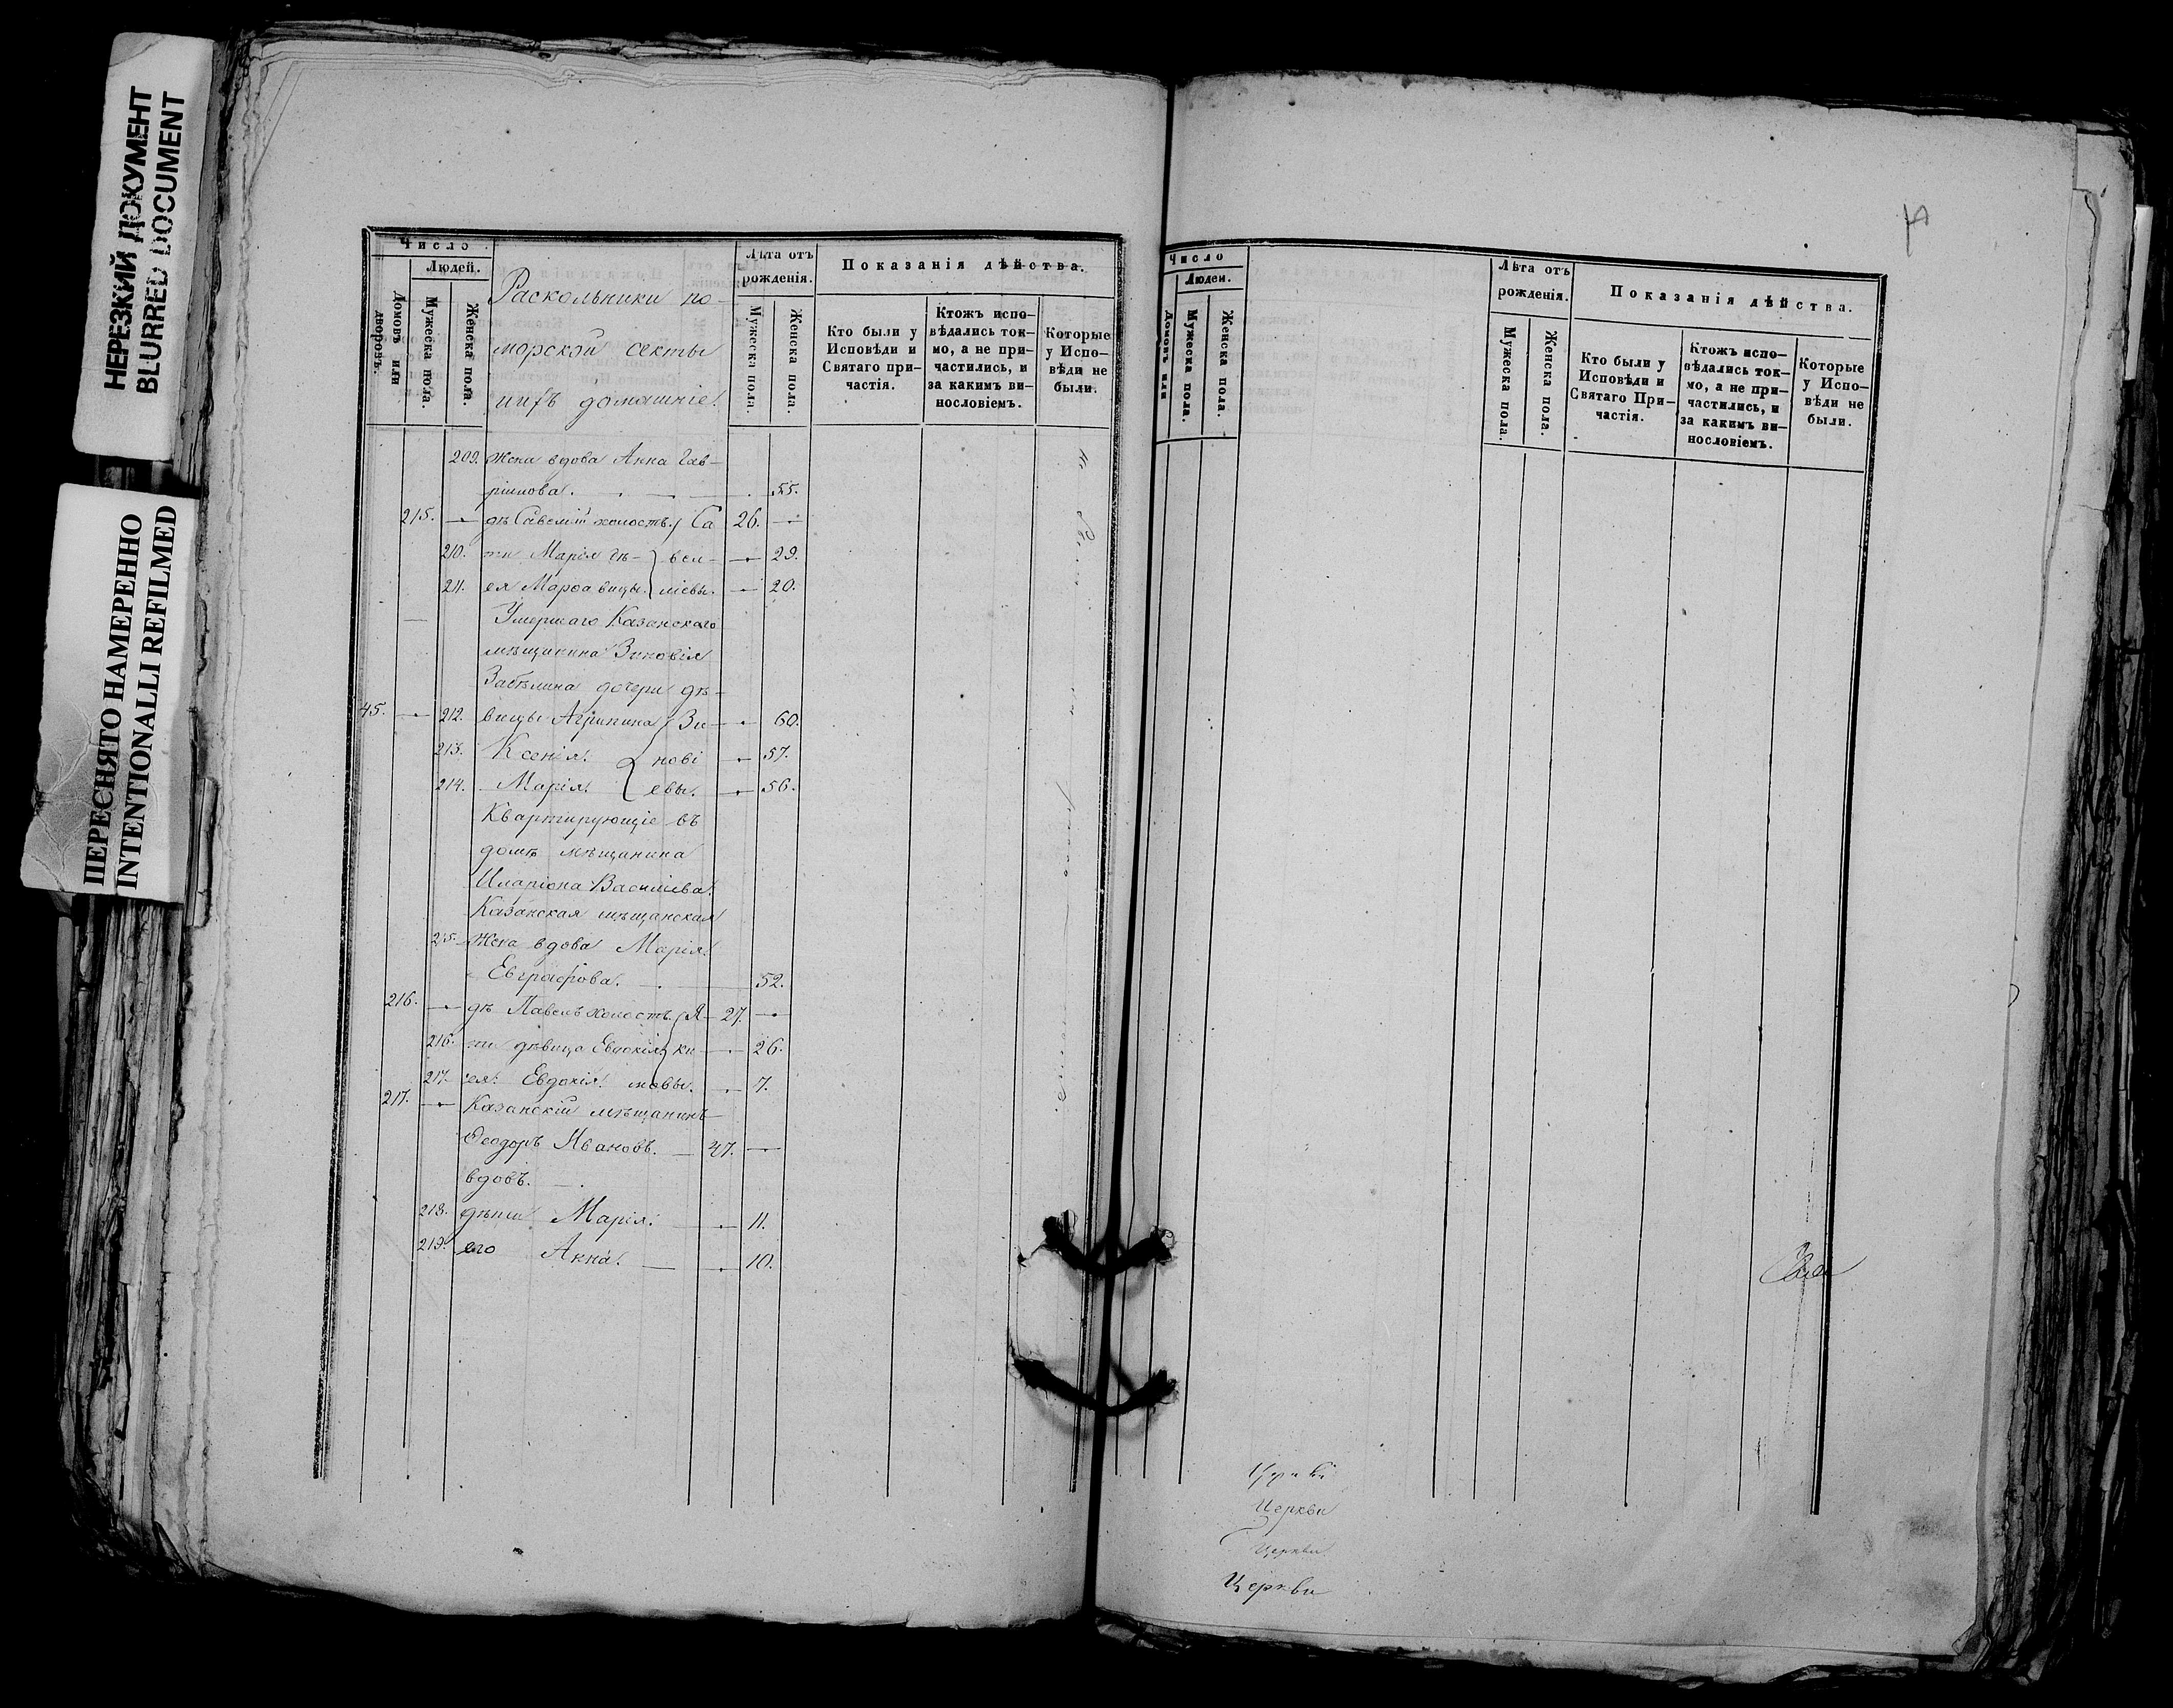 НЕРЕЗКИЙ ДОКУМЕНТ
BLURRED DOCUMENT
ПЕРЕСНЯТО НАМЕРЕННО
INTENTIONALLI REFILMED
Число
Людей.
Домовъ или дворовъ.
Мужеска пола.
Женска пола.
Раскольники по-
морской секты
ихъ домашніе.
Лѣта отъ рожденія.
Мужеска пола.
Женска пола.
Показанія дѣйства.
Кто были у Исповѣди и Святаго при-частія.
Ктожъ испо-вѣдались ток-мо, а не при-частились, и за какимъ ви-нословіемъ.
Которые у Испо-вѣди не были.
209. Жена вдова Анна Гав-
рилова. 55.
215. — дѣ Савелій холостъ. Са 26. —
210. ти Марія дѣ- вел- — 29.
211. ея Марѳа вицы. ліевы. — 20.
Умершаго Казанскаго
мѣщанина Зиновія
Забѣлина дочери дѣ-
45. — 212. вицы Агрипина Зи- — 60.
213. Ксенія. нові — 57.
214. Марія. евы. — 56.
Квартирующіе въ
домѣ мѣщанина
Иларіона Василіева.
Казанская мѣщанская
215. Жена вдова Марія
Евграфова. 52.
216. — дѣ Павелъ холостъ. Я- 27. —
216. ти дѣвица Евдокія ки- — 26.
217. ея. Евдокія. мовы. — 7.
217. — Казанскій мѣщанинъ
Ѳеодоръ Ивановъ. — 47. —
вдовъ.
218. дѣти Марія. — 11.
219. его Анна. — 10.
Число
Людей.
Домовъ или
Мужеска пола.
Женска пола.
Лѣта отъ рожденія.
Мужеска пола.
Женска пола.
Показанія дѣйства.
Кто были у Исповѣди и Святаго При-частія.
Ктожъ испо-вѣдались ток-мо, а не при-частились, и за какимъ ви-нословіемъ.
Которые у Испо-вѣди не были.
Церкви
Церкви
Церкви